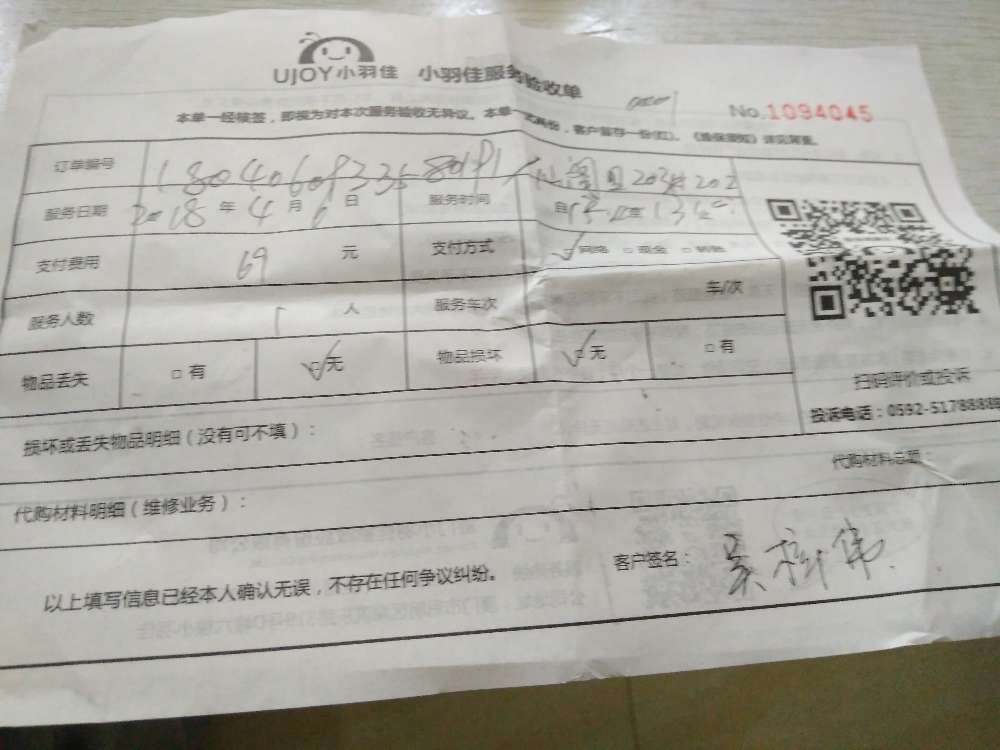 UJOY小羽佳 小羽佳服务验收单
No.1094045
本单一经核签，即视为对本次服务验收无异议。本单一式两份，客户留存一份(红)。《维保须知》详见背面。
订单编号
服务日期 2018 年 4 月 6 日 服务时间 自
支付费用 69 元 支付方式 □网络 □现金 □转账
服务人数 1 人 服务车次 车/次
物品丢失 □有 □无 物品损坏 □无 □有
扫码评价或投诉
投诉电话：0592-5178888
损坏或丢失物品明细（没有可不填）：
代购材料明细（维修业务）： 代购材料总额：
以上填写信息已经本人确认无误，不存在任何争议纠纷。 客户签名：